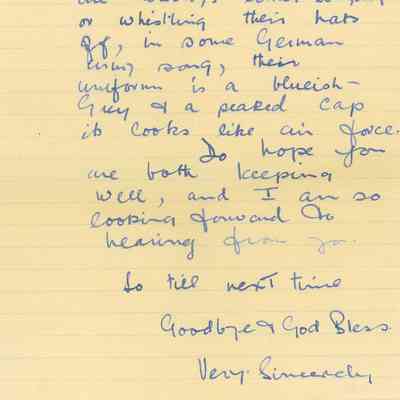 or whistling their hats
off, in some German
army song, their
uniform is a blueish-
Grey & a peaked cap
it looks like air force.
Do hope you
are both keeping
well, and I am so
looking forward to
hearing from you.
So till next time
Goodbye & God Bless
Very Sincerely